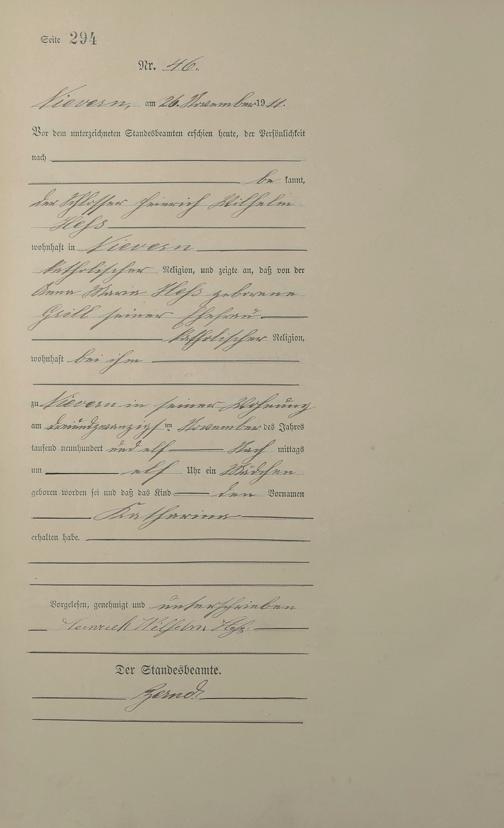 Seite 294
Nr. 46.
Nievern, am 26. November 1911.
Vor dem unterzeichneten Standesbeamten erschien heute, der Persönlichkeit
nach
be kannt,
der Schlosser Heinrich Wilhelm
Heß
wohnhaft in Nievern
katholischer Religion, und zeigte an, daß von der
Anna Maria Heß geborene
Grill seiner Ehefrau
katholischer Religion,
wohnhaft bei ihm
zu Nievern in seiner Wohnung
am dreiundzwanzigsten November des Jahres
tausend neunhundert und elf Nach mittags
um elf Uhr ein Mädchen
geboren worden sei und daß das Kind den Vornamen
Katharina
erhalten habe.
Vorgelesen, genehmigt und unterschrieben
Heinrich Wilhelm Heß.
Der Standesbeamte.